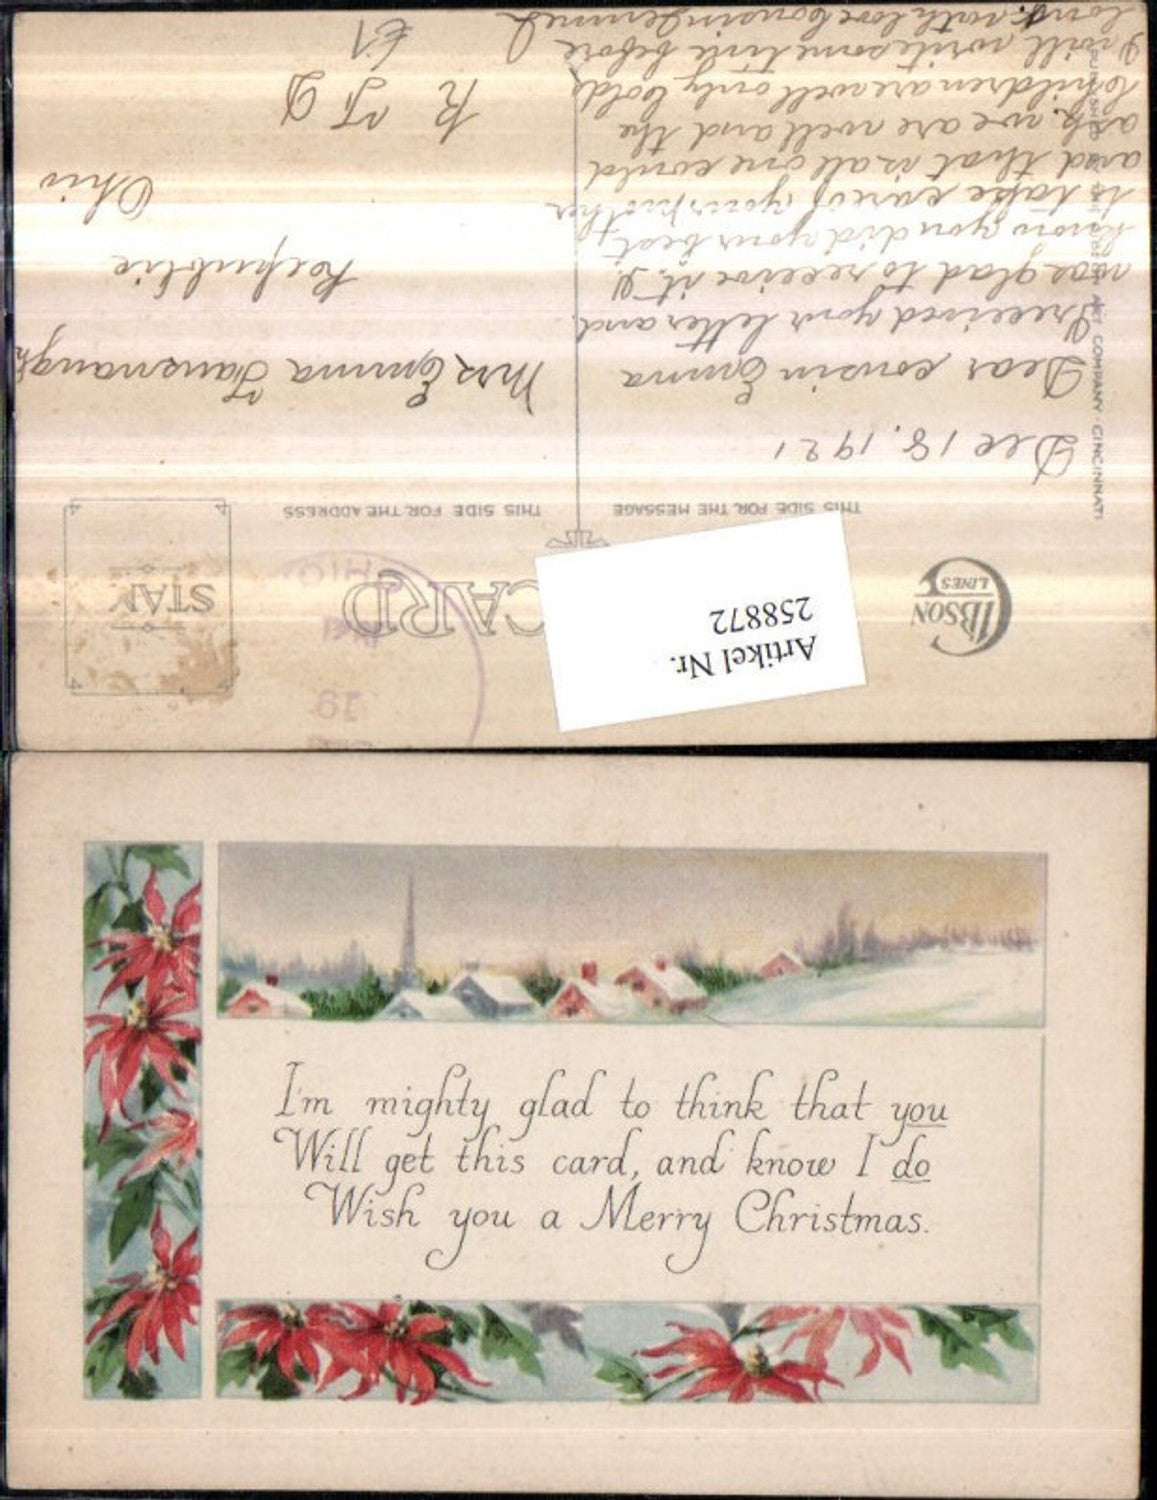 GIBSON
LINES
CARD
STAM
THIS SIDE FOR THE MESSAGE
THIS SIDE FOR THE ADDRESS
ART COMPANY · CINCINNATI
Artikel Nr.
258872
Dec 18, 1921
Dear cousin Emma
I received your letter and
was glad to receive it. I
know you did your best
to take care of your mother
and that is all one could
ask. we are well and the
children are well only colds
I will write some time before
long. with love cousin
Mrs Emma
Republic
Ohio
R F D
I'm mighty glad to think that you
Will get this card, and know I do
Wish you a Merry Christmas.